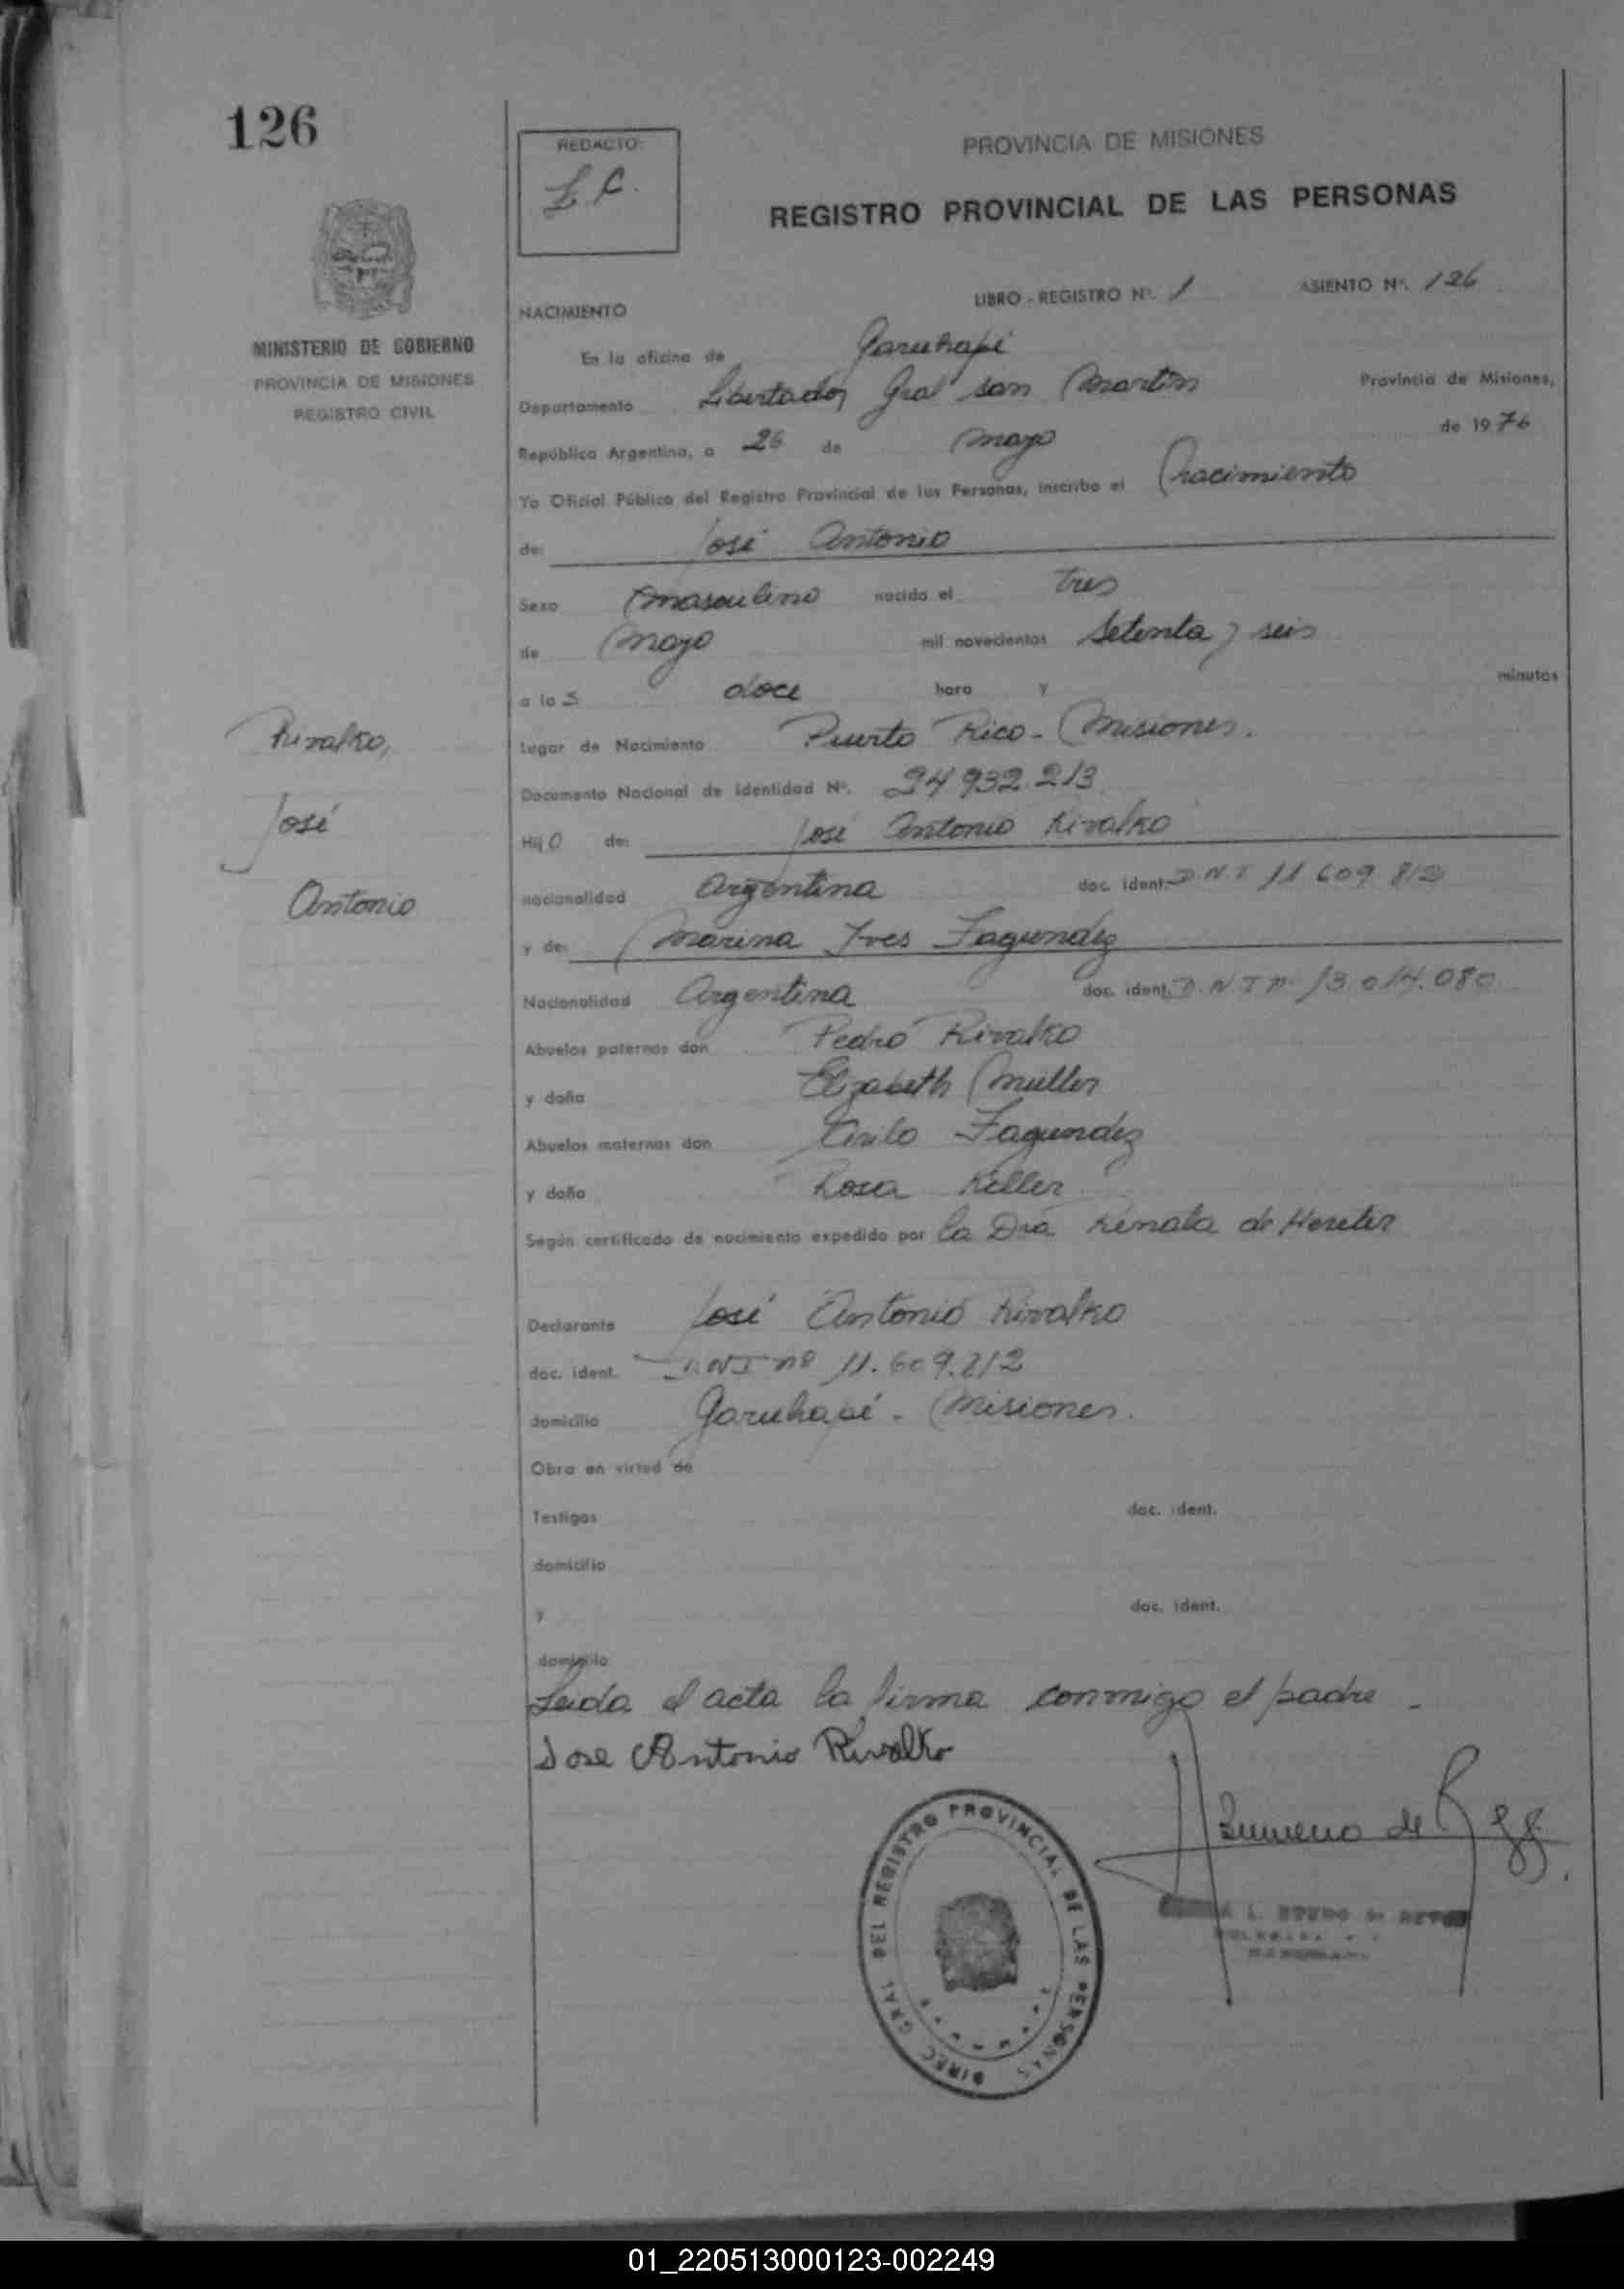 126
REDACTO:
L.C.
PROVINCIA DE MISIONES
REGISTRO PROVINCIAL DE LAS PERSONAS
MINISTERIO DE GOBIERNO
PROVINCIA DE MISIONES
REGISTRO CIVIL
NACIMIENTO LIBRO - REGISTRO Nº. 1 ASIENTO Nº. 126
En la oficina de Garuhapé
Departamento Libertador Gral San Martin Provincia de Misiones,
República Argentina, a 26 de mayo de 1976
Yo Oficial Público del Registro Provincial de las Personas, inscribo el nacimiento
de: José Antonio
Sexo masculino nacido el tres
de mayo mil novecientos setenta y seis
a las doce hora y minutos
Rivalko,
José
Antonio
Lugar de Nacimiento Puerto Rico - Misiones.
Documento Nacional de Identidad Nº. 24 932.213
Hijo de: José Antonio Rivalko
nacionalidad Argentina doc. ident. D.N.I 11 609 812
y de: Marina Ives Fagundez
Nacionalidad Argentina doc. ident. D.N.I nº 13.014.080
Abuelos paternos don Pedro Rivalko
y doña Elizabeth Muller
Abuelos maternos don Cirilo Fagundez
y doña Rosa Keller
Según certificado de nacimiento expedido por la Dra Renata de
Declarante José Antonio Rivalko
doc. ident. D.N.I nº 11.609.812
domicilio Garuhapé - Misiones.
Obra en virtud de
Testigos doc. ident.
domicilio
y doc. ident.
domicilio
Leida el acta la firma conmigo el padre.
Jose Antonio Rivalko
DIREC GRAL DEL REGISTRO PROVINCIAL DE LAS PERSONAS
01_220513000123-002249